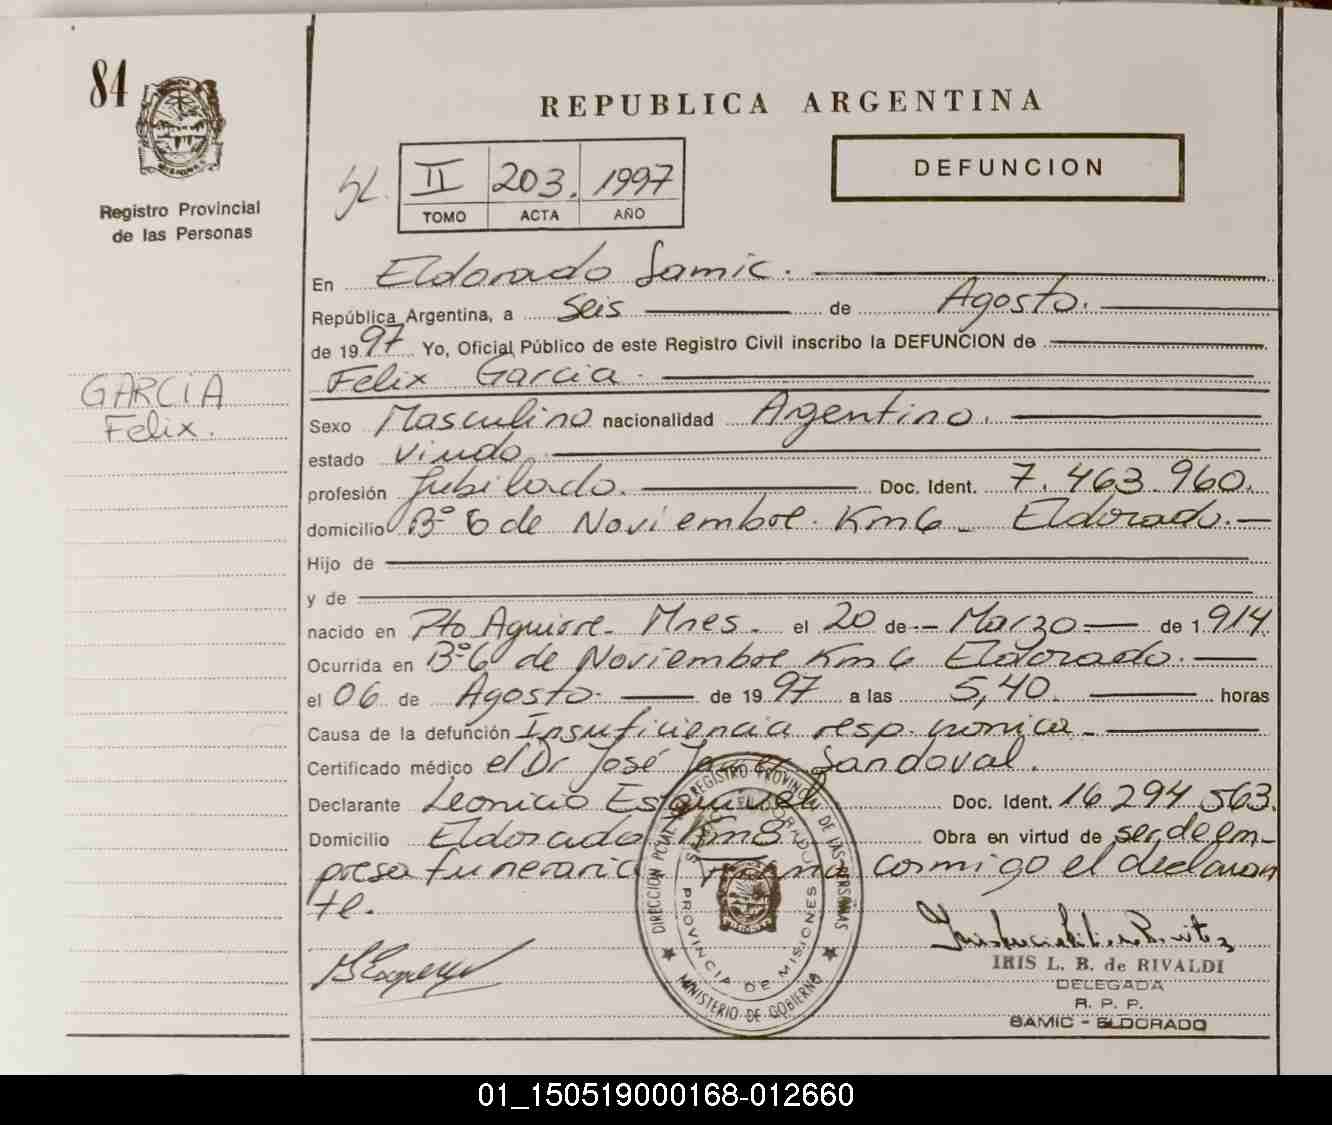 84
Registro Provincial
de las Personas
GARCIA
Felix.
REPUBLICA ARGENTINA
DEFUNCION
II 203. 1997
TOMO ACTA AÑO
En Eldorado Samic.
República Argentina, a seis de Agosto.
de 1997 Yo, Oficial Público de este Registro Civil inscribo la DEFUNCION de
Felix Garcia.
Sexo Masculino nacionalidad Argentino.
estado viudo.
profesión Jubilado. Doc. Ident. 7.463.960.
domicilio Bº 6 de Noviembre. Km 6 - Eldorado.
Hijo de
y de
nacido en Pto Aguirre - Mnes. el 20 de Marzo de 1.914.
Ocurrida en Bº 6 de Noviembre Km 6 Eldorado.
el 06 de Agosto de 1997 a las 5,40. horas
Causa de la defunción Insuficiencia resp. cronica.
Certificado médico el Dr José Sandoval.
Declarante Leonicio Esquivel Doc. Ident. 16294563.
Domicilio Eldorado Km 8 Obra en virtud de ser de em-
presa funeraria firma conmigo el declaran
te.
DIRECCION PCIAL DEL REGISTRO PROVINCIAL DE LAS PERSONAS
SAMIC ELDORADO
PROVINCIA DE MISIONES
MINISTERIO DE GOBIERNO
IRIS L. B. de RIVALDI
DELEGADA
R. P. P.
SAMIC - ELDORADO
01_150519000168-012660